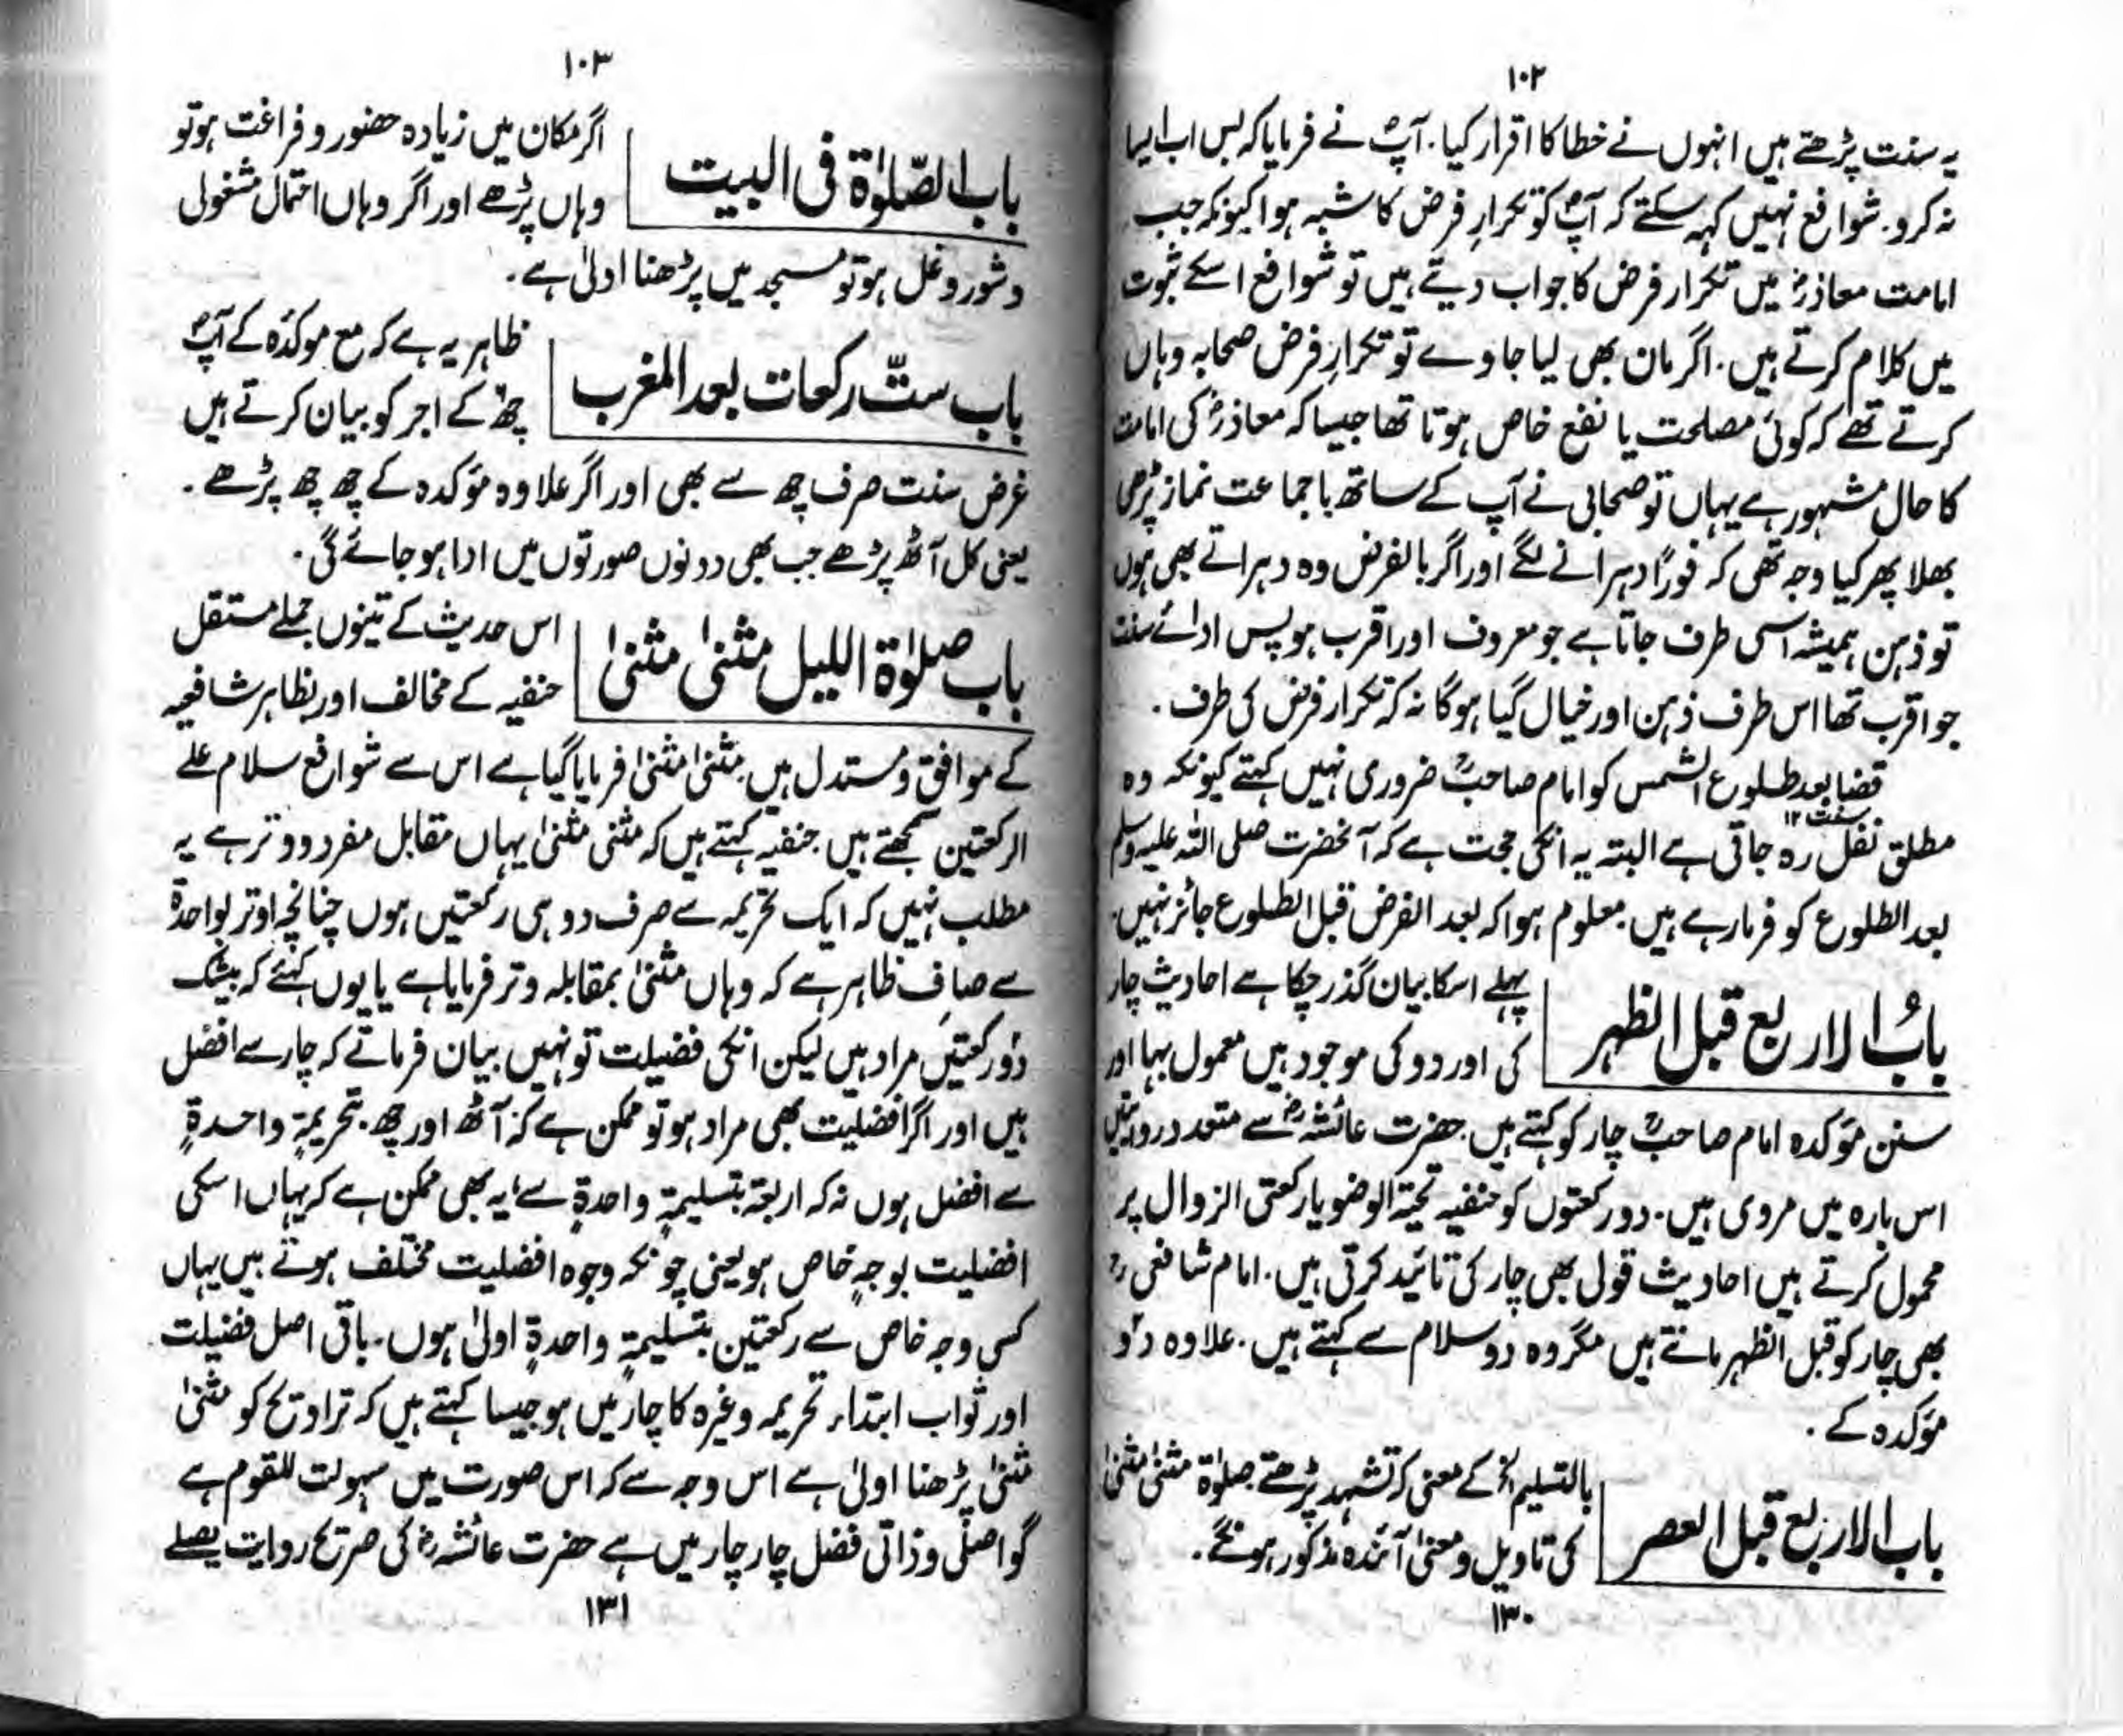 ۱۰۲
یہ سنت پڑھتے ہیں انہوں نے خطا کا اقرار کیا۔ آپؐ نے فرمایا کہ بس اب ایسا
نہ کرو۔ شوافع نہیں کہہ سکتے کہ آپؐ کو تکرارِ فرض کا شبہ ہوا کیونکہ جب
امامت معاذؓ میں تکرار فرض کا جواب دیتے ہیں تو شوافع اسکے ثبوت
میں کلام کرتے ہیں۔ اگر مان بھی لیا جاوے تو تکرارِ فرض صحابہ وہاں
کرتے تھے کہ کوئی مصلحت یا نفع خاص ہوتا تھا جیسا کہ معاذؓ کی امامت
کا حال مشہور ہے یہاں تو صحابی نے آپ کے ساتھ باجماعت نماز پڑھی
بھلا پھر کیا وجہ تھی کہ فوراً دہرانے لگے اور اگر بالفرض وہ دہراتے بھی ہوں
تو ذہن ہمیشہ اسی طرف جاتا ہے جو معروف اور اقرب ہو پس ادائے سنت
جو اقرب تھا اس طرف ذہن اور خیال گیا ہوگا نہ کہ تکرار فرض کی طرف۔
قضا بعد طلوع الشمس کو امام صاحبؒ ضروری نہیں کہتے کیونکہ وہ
سنت ۱۲
مطلق نفل رہ جاتی ہے البتہ یہ انکی حجت ہے کہ آنحضرت صلی اللہ علیہ وسلم
بعد الطلوع کو فرما رہے ہیں۔ معلوم ہوا کہ بعد الفرض قبل الطلوع جائز نہیں۔
بابُ الاربع قبل الظہر
پہلے اسکا بیان گذر چکا ہے احادیث چار
کی اور دو کی موجود ہیں معمول بہا اور
سنن مؤکدہ امام صاحبؒ چار کو کہتے ہیں۔ حضرت عائشہؓ سے متعدد روایتیں
اس بارہ میں مروی ہیں۔ دو رکعتوں کو حنفیہ تحیۃ الوضو یا رکعتی الزوال پر
محمول کرتے ہیں احادیث قولی بھی چار کی تائید کرتی ہیں۔ امام شافعیؒ
بھی چار کو قبل الظہر مانتے ہیں مگر وہ دو سلام سے کہتے ہیں۔ علاوہ دو
مؤکدہ کے۔
باب الاربع قبل العصر
بالتسلیم الخ کے معنی کہ تشہد پڑھتے۔ صلوٰۃ مثنیٰ مثنیٰ
کی تاویل و معنیٰ آئندہ مذکور ہونگے۔
۱۳۰
۱۰۳
باب الصّلوٰۃ فی البیت
اگر مکان میں زیادہ حضور و فراغت ہو تو
وہاں پڑھے اور اگر وہاں احتمال مشغولی
و شور و غل ہو تو مسجد میں پڑھنا اولیٰ ہے۔
باب ستّ رکعات بعد المغرب
ظاہر یہ ہے کہ مع موکدہ کے آپؐ
چھ کے اجر کو بیان کرتے ہیں
غرض سنت صرف چھ سے بھی اور اگر علاوہ مؤکدہ کے چھ چھ پڑھے۔
یعنی کل آٹھ پڑھے جب بھی دونوں صورتوں میں ادا ہو جائے گی۔
باب صلوٰۃ اللیل مثنیٰ مثنیٰ
اس حدیث کے تینوں جملے مستقل
حنفیہ کے مخالف اور بظاہر شافعیہ
کے موافق و مستدل ہیں۔ مثنیٰ مثنیٰ فرمایا گیا ہے اس سے شوافع سلام علے
الرکعتین سمجھتے ہیں۔ حنفیہ کہتے ہیں کہ مثنی مثنیٰ یہاں مقابل مفرد و وتر ہے یہ
مطلب نہیں کہ ایک تحریمہ سے صرف دو ہی رکعتیں ہوں چنانچہ اوتر بواحدۃ
سے صاف ظاہر ہے کہ وہاں مثنیٰ بمقابلہ وتر فرمایا ہے یا یوں کہئے کہ بیشک
دو رکعتیں مراد ہیں لیکن انکی فضیلت تو نہیں بیان فرماتے کہ چار سے افضل
ہیں اور اگر افضلیت بھی مراد ہو تو ممکن ہے کہ آٹھ اور چھ۔ بتحریمۃٍ واحدۃٍ
سے افضل ہوں نہ کہ اربعۃ بتسلیمۃٍ واحدۃٍ سے، یہ بھی ممکن ہے کہ یہاں اسکی
افضلیت بوجہٍ خاص ہو یعنی چونکہ وجوہ افضلیت مختلف ہوتے ہیں یہاں
کسی وجہ خاص سے رکعتین بتسلیمۃٍ واحدۃٍ اولیٰ ہوں۔ باقی اصل فضیلت
اور ثواب ابتداء تحریمہ وغیرہ کا چار میں ہو جیسا کہتے ہیں کہ تراویح کو مثنیٰ
مثنیٰ پڑھنا اولیٰ ہے اس وجہ سے کہ اس صورت میں سہولت للقوم ہے
گو اصلی و ذاتی فضل چار چار میں ہے حضرت عائشہؓ کی صریح روایت یصلے
۱۳۱